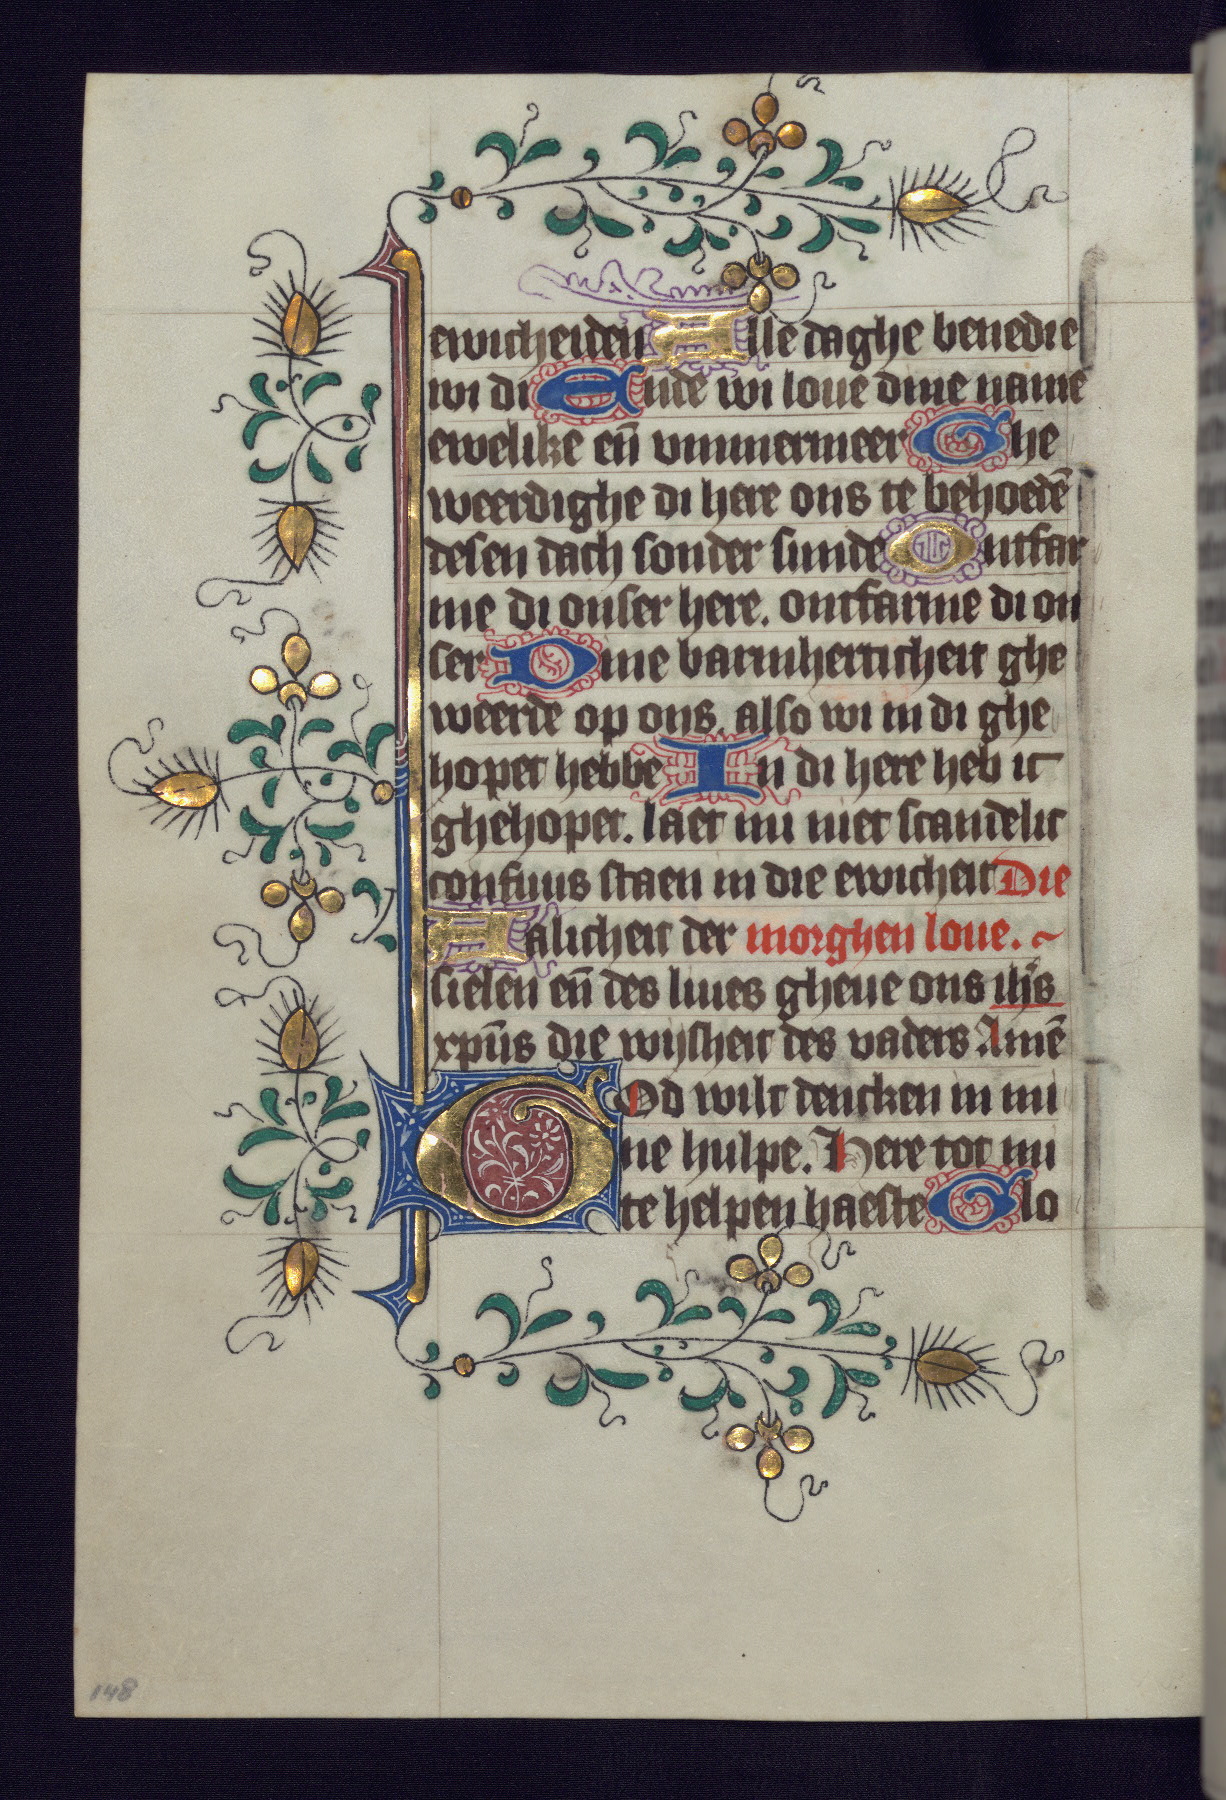 ewicheiden Alle daghe benedie
wi di Ende wi loue dine name
ewelike en̄ vmmermeer Ghe
weerdighe di here ons te behoedē
desen dach sonder sunde Ontfar
me di onser here. ontfarme di on
ser Dine barmherticheit ghe
weerde op ons. also wi in di ghe
hopet hebbe In di here heb ic
ghehopet. laet mi niet scandelic
confuus staen in die ewicheit Die
Salicheit der morghen loue. ~
sielen en̄ des liues gheue ons ih̄s
xpūs die wijsheit des vaders Amē
GOd wilt dencken in mi
ne hulpe. Here tot mi
te helpen haeste Glo
148